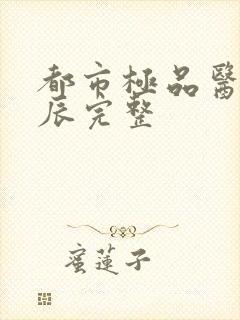 都市極品醫
辰完整
蜜蓮子